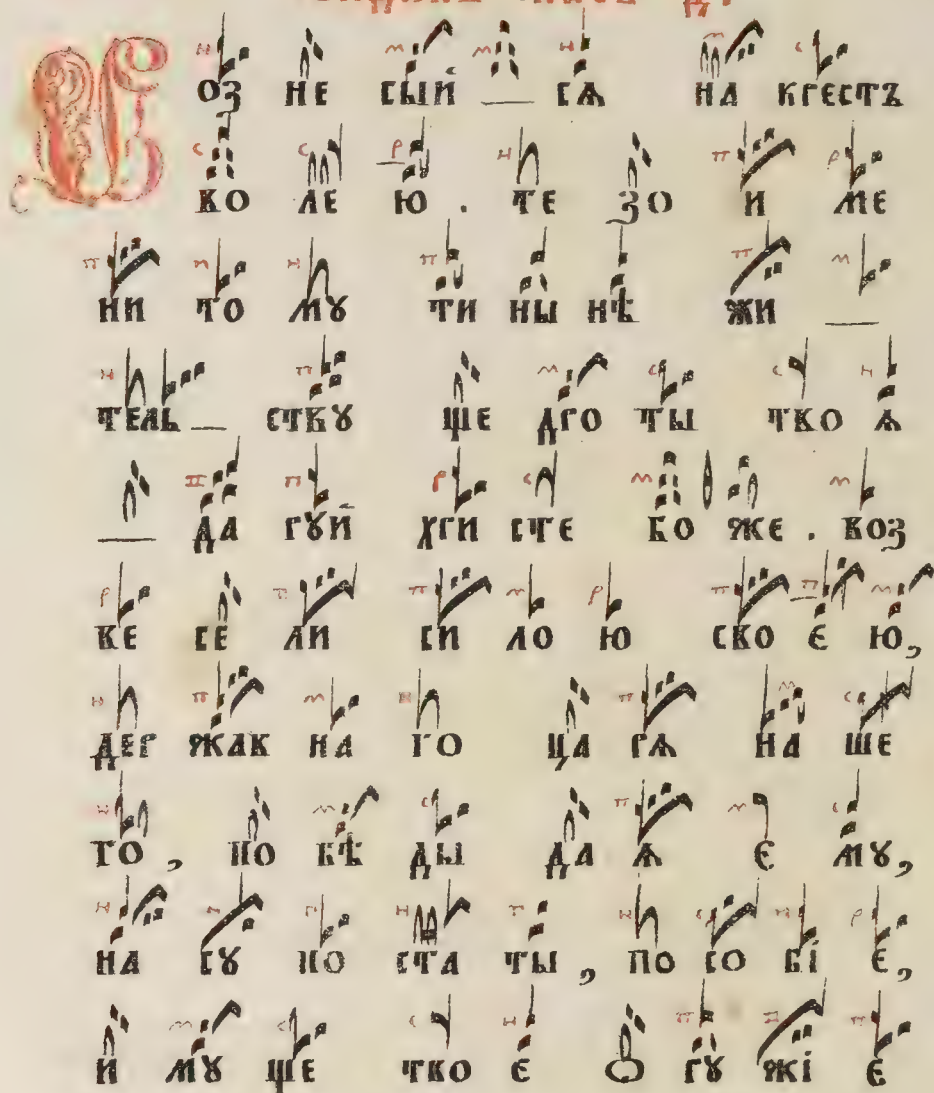 гласъ д.
ВОЗ НЕ СЫЙ — СѦ НА КРЕСТЪ
ВО ЛЕ Ю . ТЕ ЗО И МЕ
НИ ТО МꙊ ТИ НЫ НѢ ЖИ —
ТЕЛЬ — СТВꙊ ЩЕ ДРО ТЫ ТВО Ѧ
— ДА РꙊЙ ХРИ СТЕ БО ЖЕ . ВОЗ
ВЕ СЕ ЛИ СИ ЛО Ю СВО Є Ю,
ДЕР ЖАВ НА ГО ЦА РѦ НА ШЕ
ГО , ПО БѢ ДЫ ДА Ѧ Є МꙊ,
НА СꙊ ПО СТА ТЫ , ПО СО БІ Е,
И МꙊ ЩЕ ТВО Е Ѻ РꙊ ЖІ Е